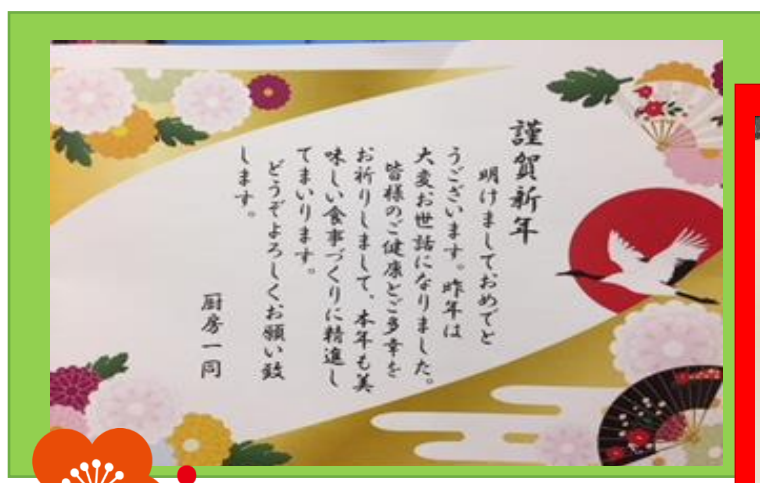 謹賀新年
明けましておめでと
うございます。昨年は
大変お世話になりました。
皆様のご健康とご多幸を
お祈りしまして、本年も美
味しい食事づくりに精進し
てまいります。
どうぞよろしくお願い致
します。
厨房一同